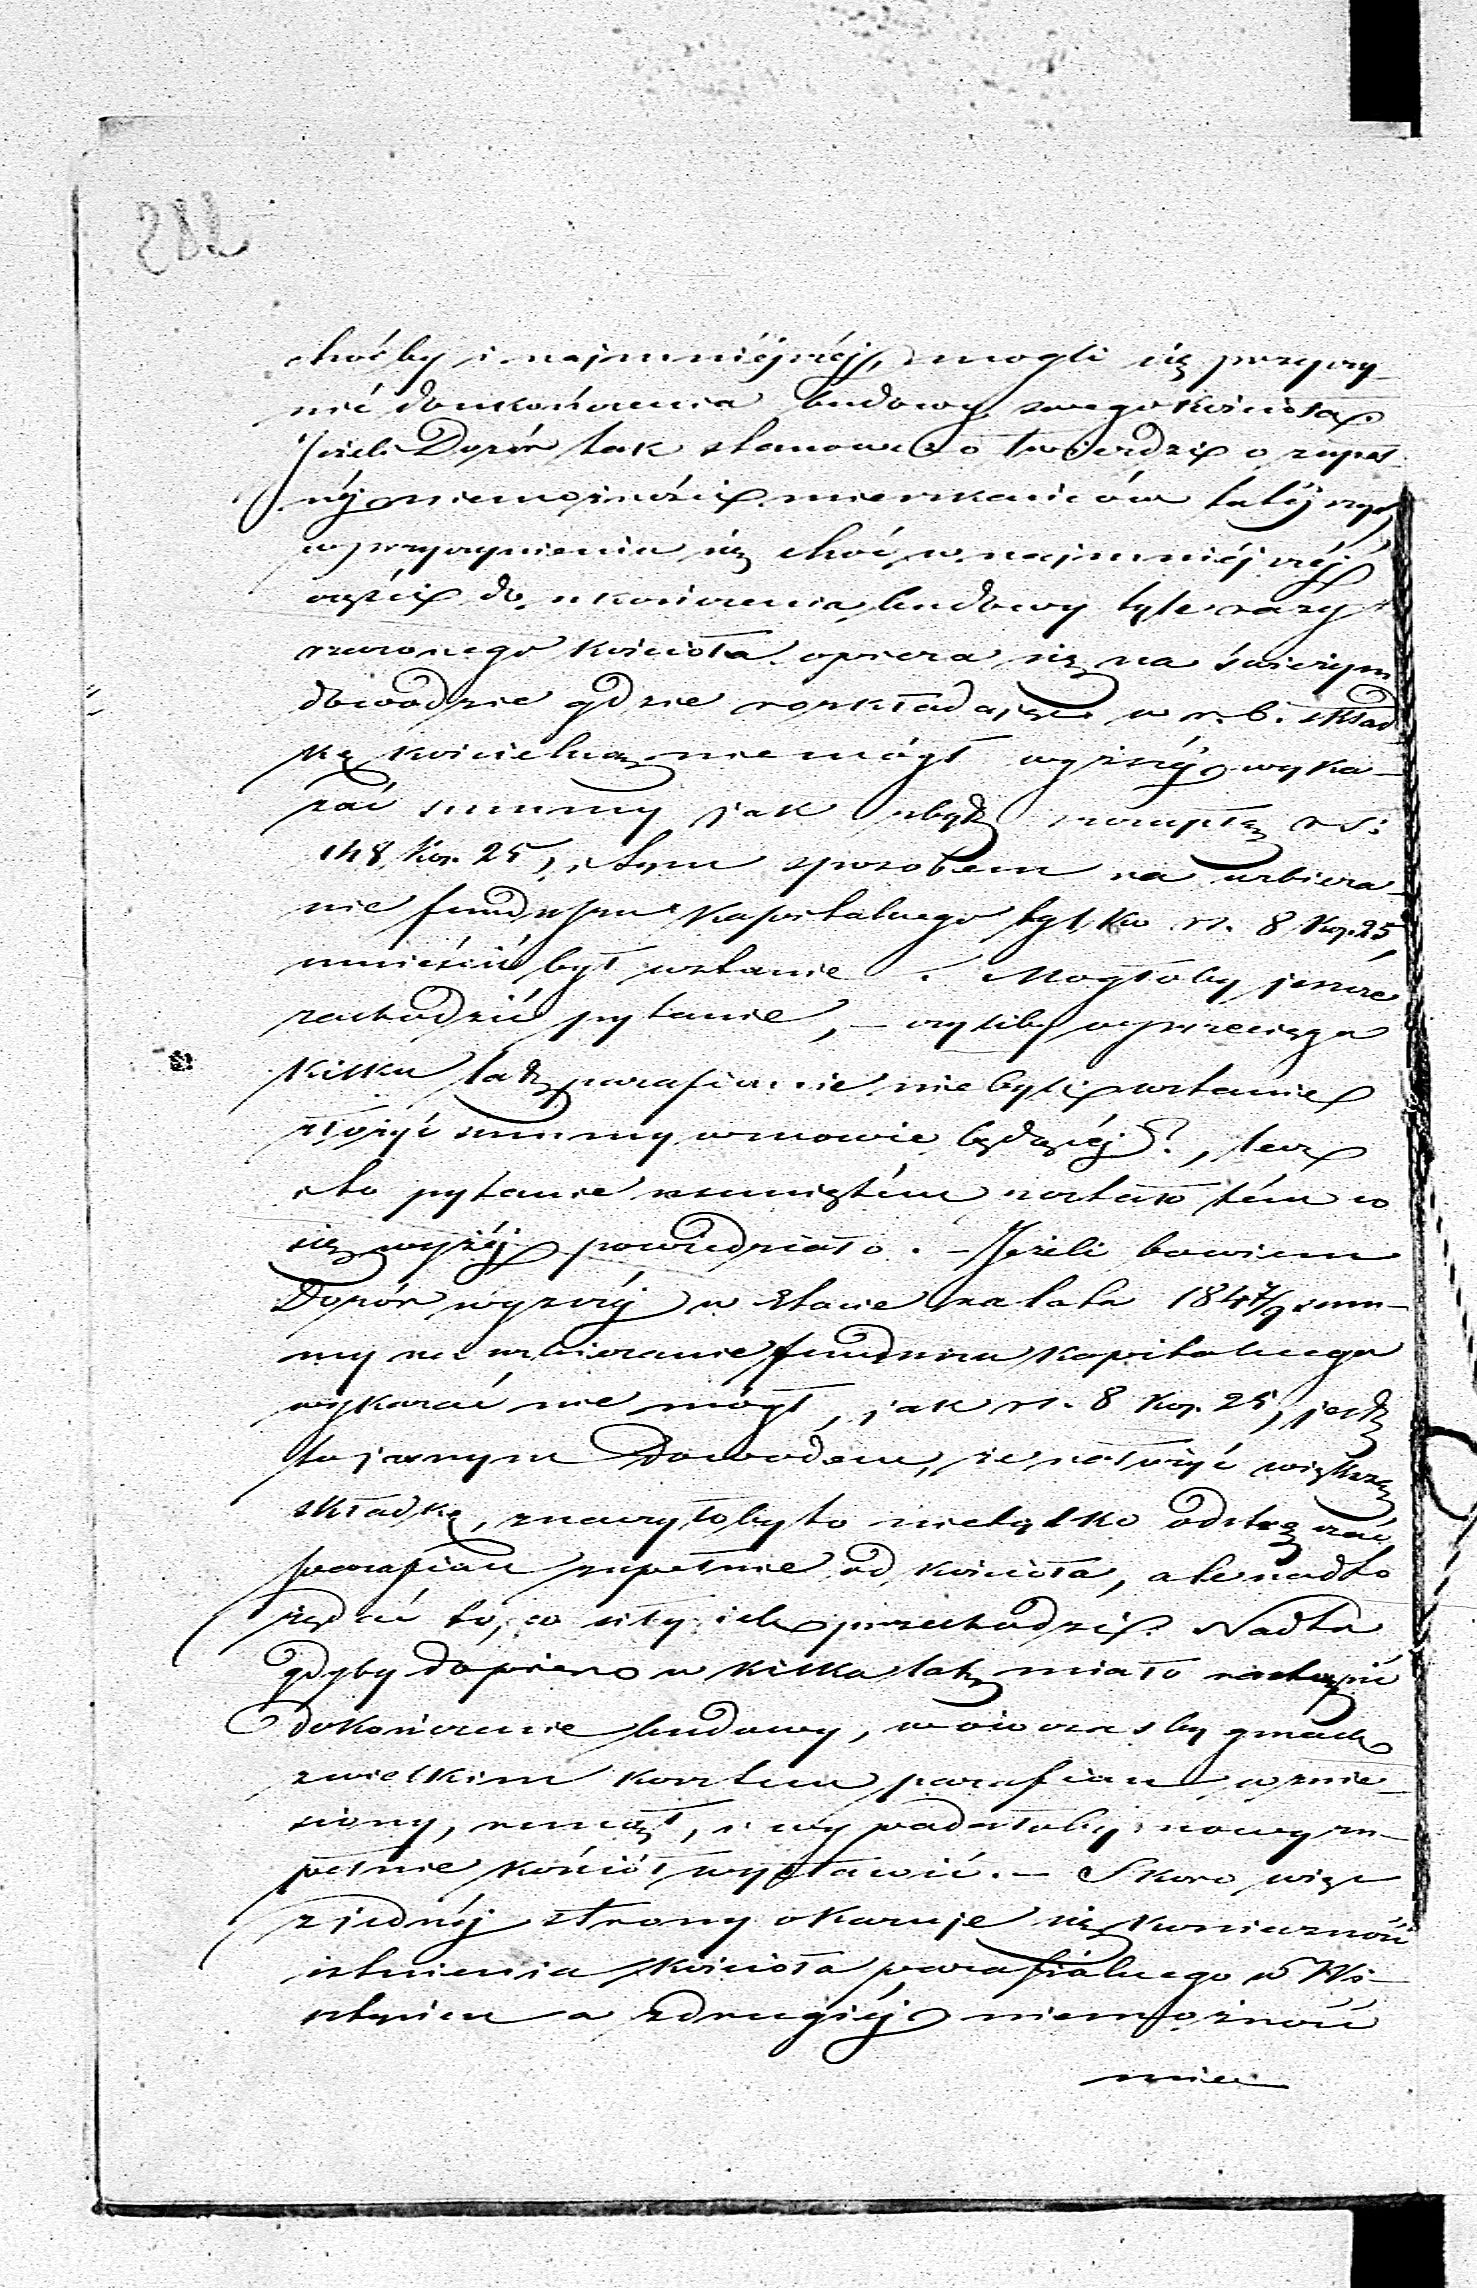 choćby i najmniejszéj, mogli się przyczy-
nić doukończenia budowy swego Kościoła.
Jeżeli Dozór tak stanowczo twierdzi o zupeł-
néj niemożności mieszkańców tutéjszych
w przyczynieniu się choć w najmniéjszéj
części do ukończenia budowy tyle razy
rzeczonego Kościoła opiera się na świeżym
dowodzie gdzie rozkładając w r. b. skład-
kę kościelną nie mógł wyższéj wyka-
zać summy jak zbyt szczupłą rs:
148 Kop. 25, i tym sposobem na uzbiera-
nie funduszu Kapitalnego tylko rs. 8 Kop. 25,
umieścić był wstanie. Mogłoby jeszcze
zachodzić pytanie, – czyliby w przeciągu
Kilku lat parafianie nie byli wstanie
złożyć summy wmowie będącéj?, lecz
i to pytanie usuniętém zostało tém co
się wyżéj powiedziało. – Jeżeli bowiem
Dozór wyższéj w Etacie na lata 1847/9 sum-
my na uzbieranie funduszu Kapitalnego
wykazać nie mógł, jak rs. 8 Kop. 25, jest
to jasnym Dowodem, że nałożyć większą
składkę, znaczyłoby to nietylko odstręczać
parafian zupełnie od kościoła, ale nadto
żądać to, co siły ich przechodzi. Nadto
gdyby dopiero w Kilka lat miało nastąpić
dokończenie budowy, wówczas by gmach
zwielkim kosztem parafian wznie-
siony, runął, i wypadałoby nowy zu-
pełnie kościół wystawić. – Skoro więc
z jednéj strony okazuje się konieczność
istnienia Kościoła parafialnego w
a zdrugiéj niemożność